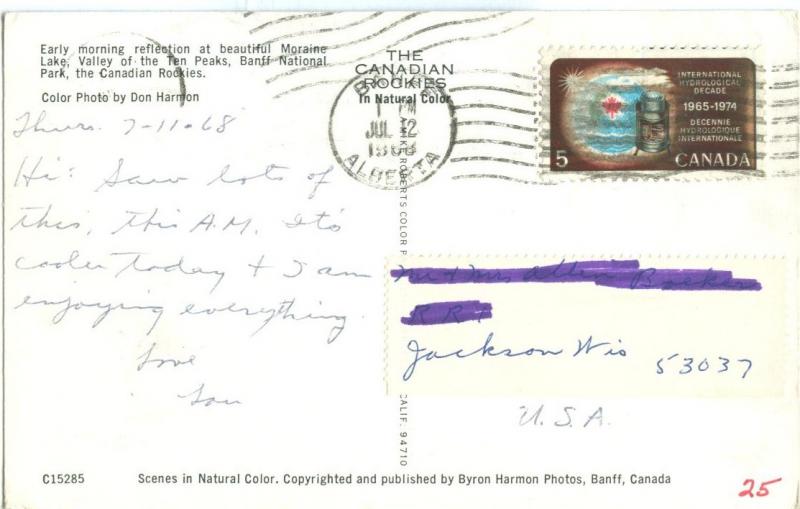 Early morning reflection at beautiful Moraine
Lake, Valley of the Ten Peaks, Banff National
Park, the Canadian Rockies.
Color Photo by Don Harmon
THE
CANADIAN
ROCKIES
In Natural Color
PM
JUL 12
1968
ALBERTA
INTERNATIONAL
HYDROLOGICAL
DECADE
1965-1974
DECENNIE
HYDROLOGIQUE
INTERNATIONALE
5 CANADA
Thurs. 7-11-68
Hi: Saw lots of
this, this A.M. It's
cooler today + I am
enjoying everything.
Love
Lou
MIKE ROBERTS COLOR
CALIF. 94710
Mr + Mrs
RR1
Jackson Wis 53037
U.S.A.
C15285
Scenes in Natural Color. Copyrighted and published by Byron Harmon Photos, Banff, Canada
25